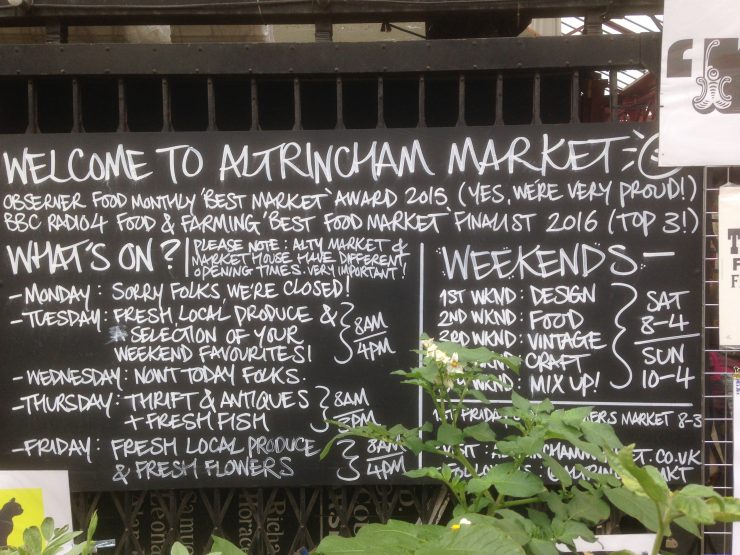 WELCOME TO ALTRINCHAM MARKET
OBSERVER FOOD MONTHLY 'BEST MARKET' AWARD 2015 (YES, WE'RE VERY PROUD!)
BBC RADIO 4 FOOD & FARMING 'BEST FOOD MARKET' FINALIST 2016 (TOP 3!)
WHAT'S ON?
PLEASE NOTE: ALTY MARKET &
MARKET HOUSE HAVE DIFFERENT
OPENING TIMES. VERY IMPORTANT!
- MONDAY: SORRY FOLKS, WE'RE CLOSED!
- TUESDAY: FRESH LOCAL PRODUCE &
A SELECTION OF YOUR
WEEKEND FAVOURITES!
8AM
4PM
- WEDNESDAY: NOWT TODAY FOLKS.
- THURSDAY: THRIFT & ANTIQUES
+ FRESH FISH
8AM
3PM
- FRIDAY: FRESH LOCAL PRODUCE
& FRESH FLOWERS
8AM
4PM
WEEKENDS -
1ST WKND: DESIGN
2ND WKND: FOOD
3RD WKND: VINTAGE
CRAFT
WKND: MIX UP!
SAT
8-4
SUN
10-4
MARKET 8-3